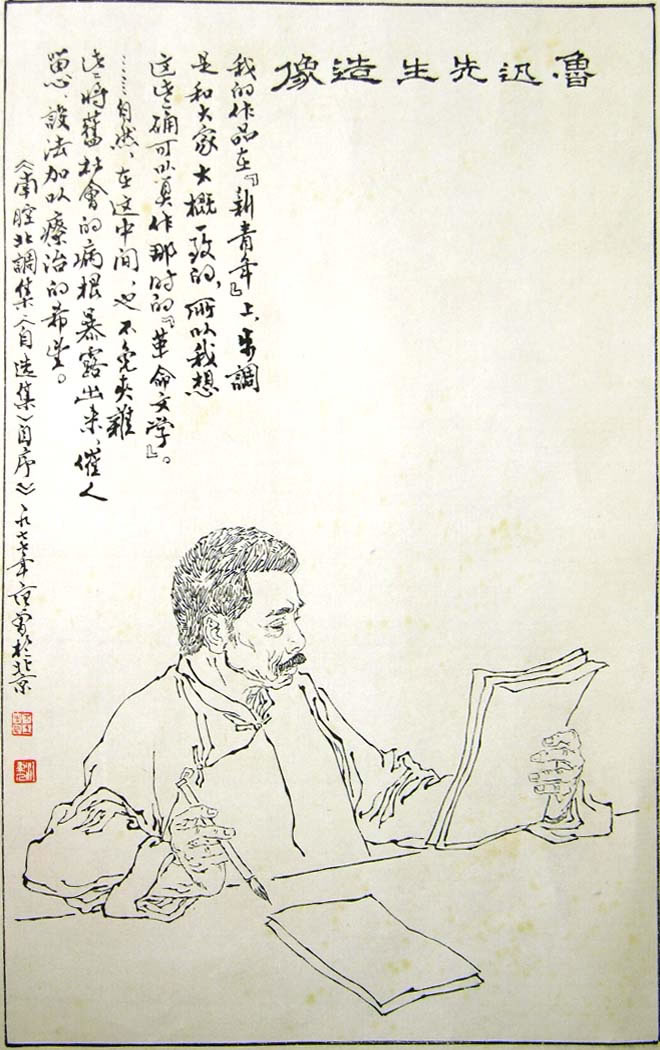 魯迅先生造像
我的作品在『新青年』上，步調
是和大家大概一致的，所以我想
这些确可以算作那时的『革命文学』。
……自然，在这中间，也不免夾雜
些將舊社會的病根暴露出来，催人
留心，設法加以療治的希望。
《南腔北調集〈自选集〉自序》一九七七年范曾於北京